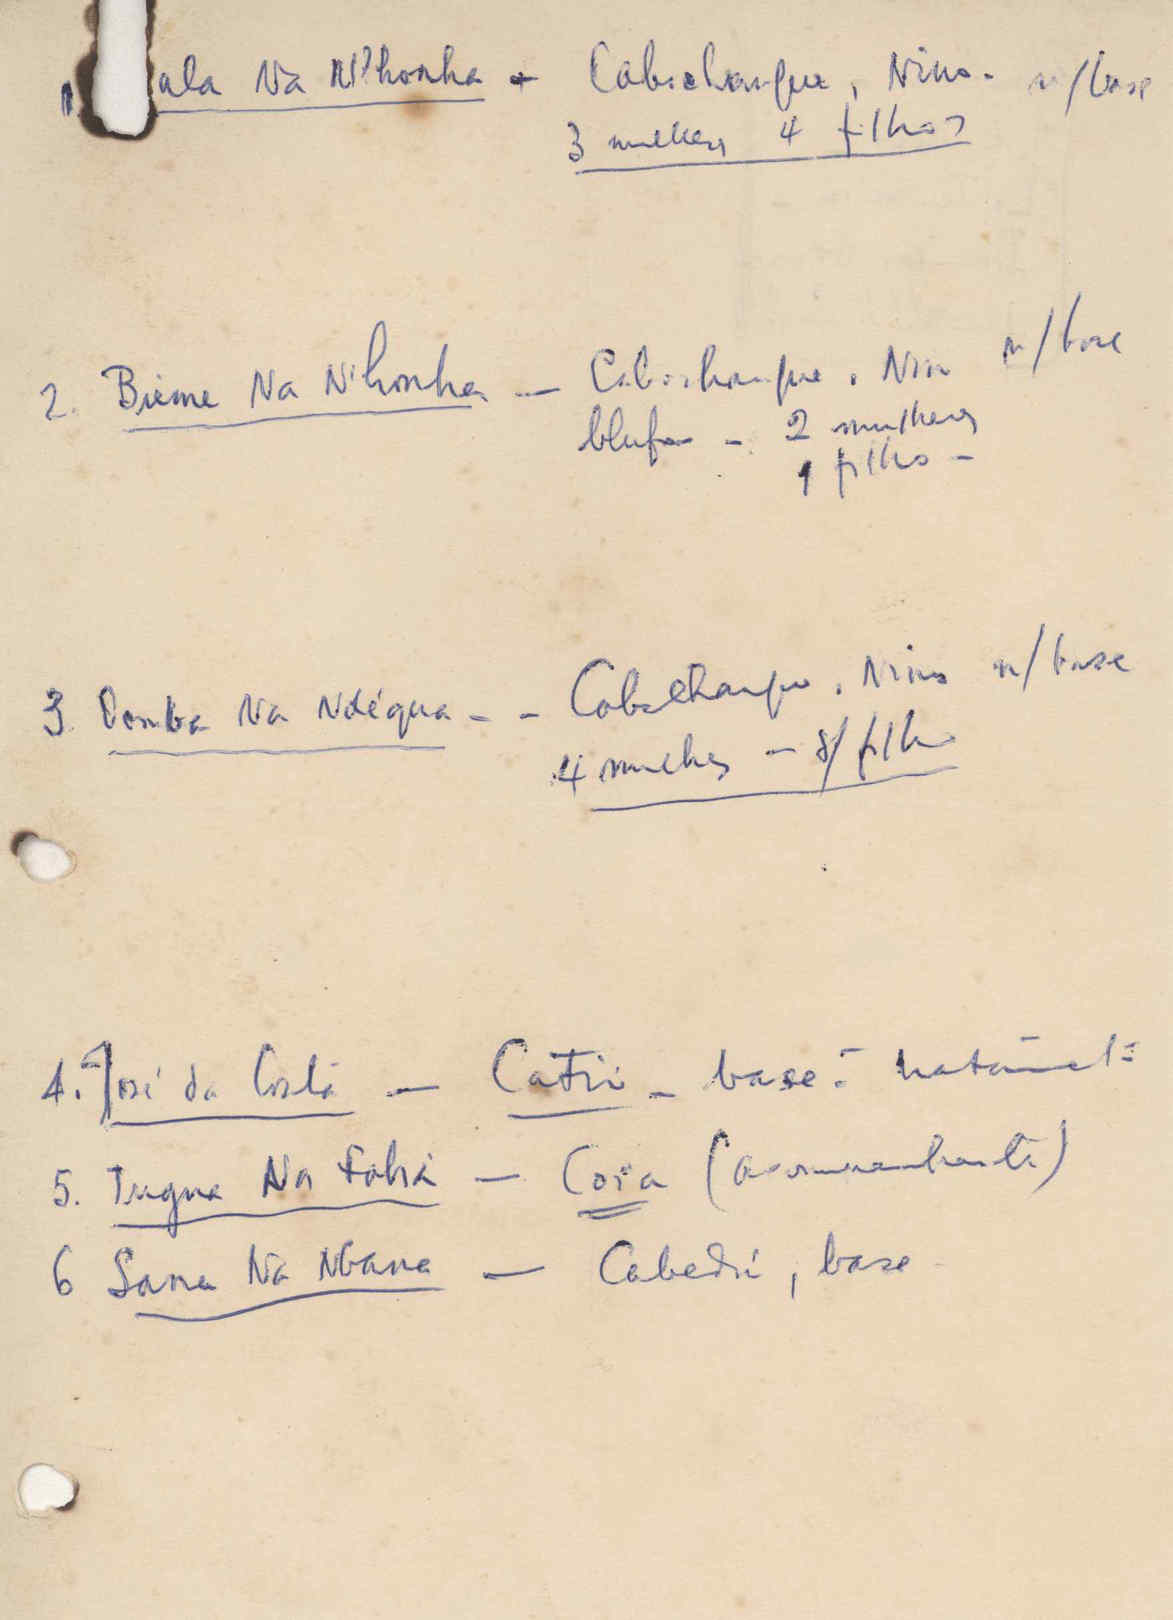 1. ala Na N'honha - Cabochanque, Nino. n/base
3 mulheres 4 filhos
2. Bieme Na N'honha - Cabochanque, Nino n/base
blufo - 2 mulheres
1 filho -
3. Demba Na Ndéqua - - Cabochanque, Nino n/base
4 mulhes - s/ filho
4. José da Costa - Catió - base:
5. Na - (acompanhante)
6 Sana Na Nbana - Cabedú, base